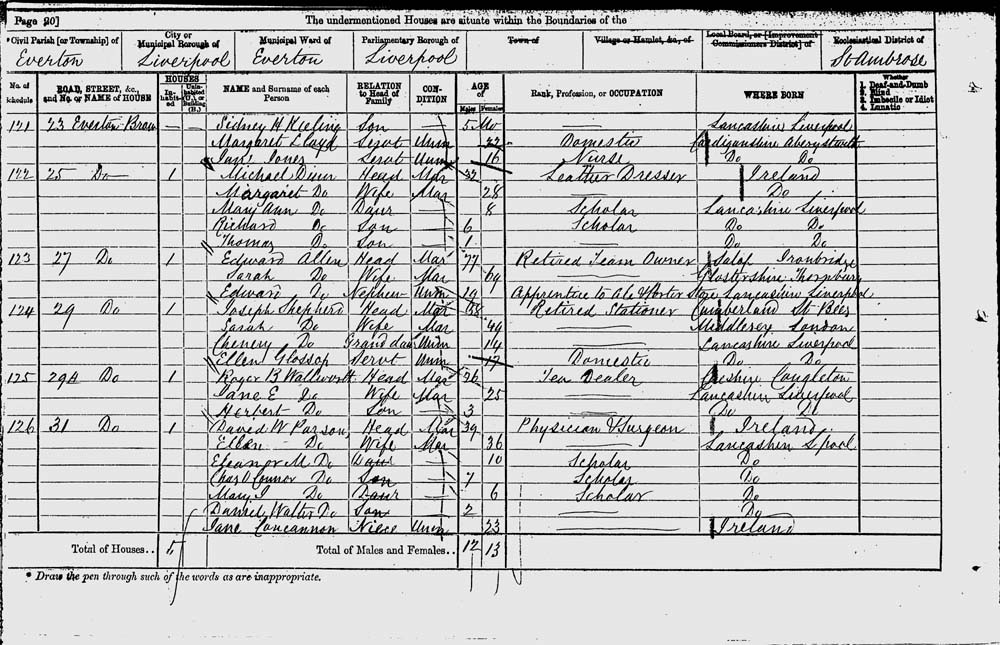 Page 20] The undermentioned Houses are situate within the Boundaries of the
* Civil Parish [or Township] of City or Municipal Borough of Municipal Ward of Parliamentary Borough of Town of Village or Hamlet, &c., of Local Board, or [Improvement Commissioners District] of Ecclesiastical District of
Everton Liverpool Everton Liverpool St Ambrose
No. of Schedule ROAD, STREET, &c., and No. or NAME of HOUSE HOUSES In-habit-ed Unin-habited (U.), or Building (B.) NAME and Surname of each Person RELATION to Head of Family CON-DITION AGE of Males Females Rank, Profession, or OCCUPATION WHERE BORN Whether 1. Deaf-and-Dumb 2. Blind 3. Imbecile or Idiot 4. Lunatic
121 23 Everton Brow Sidney H Son 5 Mo Lancashire Liverpool
Margaret Lloyd Servt Unm 22 Domestic Cardiganshire Aberystwith
Jane Jones Servt Unm 16 Nurse Do Do
122 25 Do 1 Michael Head Mar 32 Leather Dresser Ireland
Margaret Do Wife Mar 28 Do
Mary Ann Do Daur 8 Scholar Lancashire Liverpool
Richard Do Son 6 Scholar Do Do
Thomas Do Son 1 Do Do
123 27 Do 1 Edward Allen Head Mar 77 Retired Team Owner Salop Ironbridge
Sarah Do Wife Mar 69 Glostershire Thornbury
Edward Do Nephew Unm 19 Apprentice to Ale & Porter Store Lancashire Liverpool
124 29 Do 1 Joseph Shepherd Head Mar 58 Retired Stationer Cumberland St Bees
Sarah Do Wife Mar 49 Middlesex London
Do Grand daur Unm 14 Lancashire Liverpool
Ellen Glossop Servt Unm 17 Domestic Do Do
125 29A Do 1 Roger B Wallworth Head Mar 26 Tea Dealer Cheshire Congleton
Jane E Do Wife Mar 25 Lancashire Liverpool
Herbert Do Son 3 Do Do
126 31 Do 1 David W Parsons Head Mar 39 Physician & Surgeon Ireland
Ellen Do Wife Mar 36 Lancashire L pool
Eleanor M Do Daur 10 Scholar Do
Chas O'Connor Do Son 7 Scholar Do
Mary J Do Daur 6 Scholar Do
Daniel Walter Do Son 2 Do
Jane Concannon Niece Unm 23 Ireland
Total of Houses.. 5 Total of Males and Females.. 12 13
* Draw the pen through such of the words as are inappropriate.